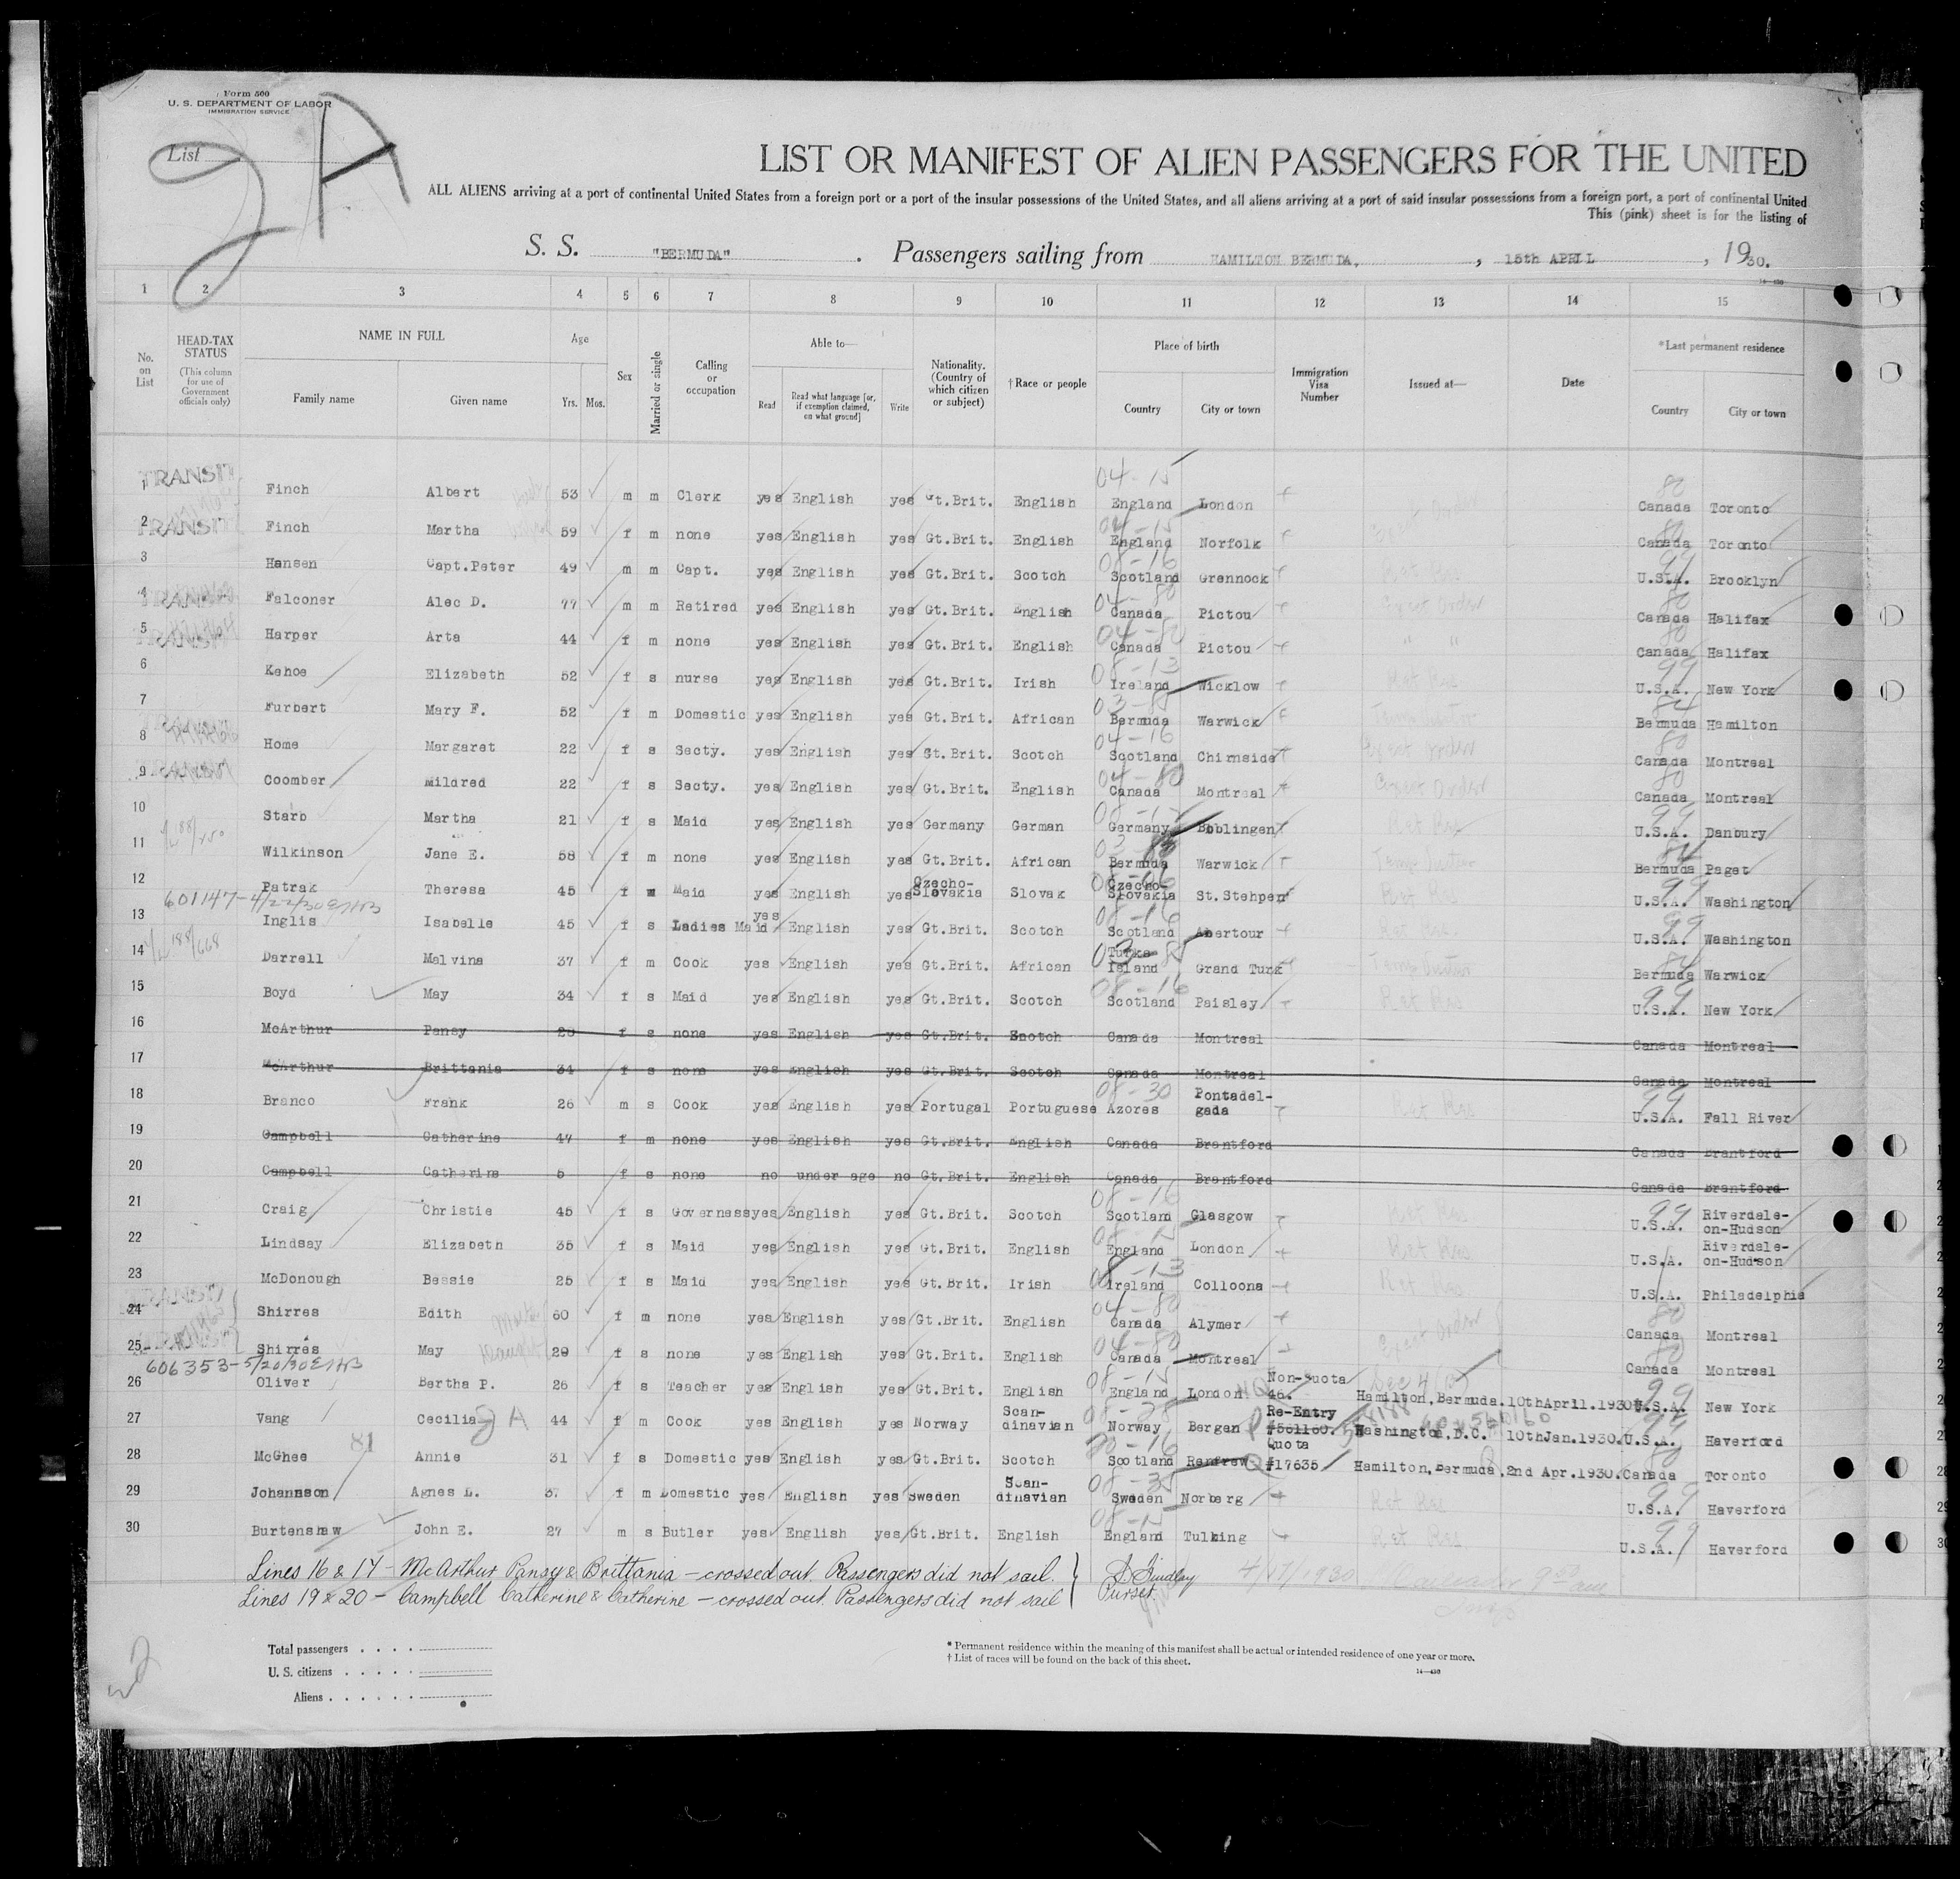 Form 500
U. S. DEPARTMENT OF LABOR
IMMIGRATION SERVICE
List
2 A
LIST OR MANIFEST OF ALIEN PASSENGERS FOR THE UNITED
ALL ALIENS arriving at a port of continental United States from a foreign port or a port of the insular possessions of the United States, and all aliens arriving at a port of said insular possessions from a foreign port, a port of continental United
This (pink) sheet is for the listing of
S. S. "BERMUDA" . Passengers sailing from HAMILTON BERMUDA, , 15th APRIL , 1930.
1 2 3 4 5 6 7 8 9 10 11 12 13 14 15
No. on List HEAD-TAX STATUS (This column for use of Government officials only) NAME IN FULL Family name Given name Age Yrs. Mos. Sex Married or single Calling or occupation Able to— Read Read what language [or, if exemption claimed, on what ground] Write Nationality. (Country of which citizen or subject) † Race or people Place of birth Country City or town Immigration Visa Number Issued at— Date *Last permanent residence Country City or town
1 TRANSIT Finch Albert 53 m m Clerk yes English yes Gt.Brit. English 04-15 England London 80 Canada Toronto
2 TRANSIT Finch Martha 59 f m none yes English yes Gt.Brit. English 04-15 England Norfolk 80 Canada Toronto
3 Hansen Capt.Peter 49 m m Capt. yes English yes Gt.Brit. Scotch 08-16 Scotland Grennock 99 U.S.A. Brooklyn
4 Falconer Alec D. 77 m m Retired yes English yes Gt.Brit. English 04-80 Canada Pictou 80 Canada Halifax
5 Harper Arta 44 f m none yes English yes Gt.Brit. English 04-80 Canada Pictou " " 80 Canada Halifax
6 Kehoe Elizabeth 52 f s nurse yes English yes Gt.Brit. Irish 08-13 Ireland Wicklow Ret Res 99 U.S.A. New York
7 Furbert Mary F. 52 f m Domestic yes English yes Gt.Brit. African Bermuda Warwick 84 Bermuda Hamilton
8 Home Margaret 22 f s Secty. yes English yes Gt.Brit. Scotch 04-16 Scotland Chirnside 80 Canada Montreal
9 Coomber Mildred 22 f s Secty. yes English yes Gt.Brit. English 04-80 Canada Montreal 80 Canada Montreal
10 Starb Martha 21 f s Maid yes English yes Germany German Germany Boblingen Ret Res 99 U.S.A. Danbury
11 Wilkinson Jane E. 58 f m none yes English yes Gt.Brit. African Bermuda Warwick 84 Bermuda Paget
12 Patrak Theresa 45 f m Maid yes English yes Czecho-Slovakia Slovak Czecho-Slovakia St.Stehpen Ret Res 99 U.S.A. Washington
601147-4/22/30
13 Inglis Isabelle 45 f s Ladies Maid yes English yes Gt.Brit. Scotch 08-16 Scotland Abertour Ret Res 99 U.S.A. Washington
14 Darrell Malvina 37 f m Cook yes English yes Gt.Brit. African Turks Island Grand Turk 84 Bermuda Warwick
15 Boyd May 34 f s Maid yes English yes Gt.Brit. Scotch 08-16 Scotland Paisley Ret Res 99 U.S.A. New York
16 McArthur Pansy 28 f s none yes English yes Gt.Brit. Scotch Canada Montreal Canada Montreal
17 McArthur Brittania 34 f s none yes English yes Gt.Brit. Scotch Canada Montreal Canada Montreal
18 Branco Frank 26 m s Cook yes English yes Portugal Portuguese 08-30 Azores Pontadel-gada Ret Res 99 U.S.A. Fall River
19 Campbell Catherine 47 f m none yes English yes Gt.Brit. English Canada Brantford Canada Brantford
20 Campbell Catherine 5 f s none no under age no Gt.Brit. English Canada Brantford Canada Brantford
21 Craig Christie 45 f s Governess yes English yes Gt.Brit. Scotch 08-16 Scotland Glasgow Ret Res 99 U.S.A. Riverdale-on-Hudson
22 Lindsay Elizabeth 35 f s Maid yes English yes Gt.Brit. English 08-15 England London Ret Res U.S.A. Riverdale-on-Hudson
23 McDonough Bessie 25 f s Maid yes English yes Gt.Brit. Irish 08-13 Ireland Colloona Ret Res U.S.A. Philadelphia
24 Shirres Edith 60 f m none yes English yes Gt.Brit. English 04-80 Canada Alymer 80 Canada Montreal
25 Shirres May 29 f s none yes English yes Gt.Brit. English 04-80 Canada Montreal 80 Canada Montreal
606353-5/20/30
26 Oliver Bertha P. 26 f s Teacher yes English yes Gt.Brit. English 08-15 England London Non-Quota 46. Hamilton,Bermuda. 10thApril.1930 99 U.S.A. New York
27 Vang Cecilia 2 A 44 f m Cook yes English yes Norway Scan-dinavian 08-28 Norway Bergen Re-Entry Washington,D.C. 10thJan.1930. U.S.A. Haverford
28 McGhee 81 Annie 31 f s Domestic yes English yes Gt.Brit. Scotch Scotland Renfrew Q Quota #17635 Hamilton,Bermuda, 2nd Apr.1930. Canada Toronto
29 Johannson Agnes L. 37 f m Domestic yes English yes Sweden Scan-dinavian 08-35 Sweden Norberg Ret Res 99 U.S.A. Haverford
30 Burtenshaw John E. 27 m s Butler yes English yes Gt.Brit. English 08-15 England Tulking Ret Res 99 U.S.A. Haverford
Lines 16 & 17 - McArthur Pansy & Brittania - crossed out. Passengers did not sail.
Lines 19 & 20 - Campbell Catherine & Catherine - crossed out. Passengers did not sail
S. Findlay
Purser.
4/17/1930
Total passengers . . . .
U. S. citizens . . . . .
Aliens . . . . . .
* Permanent residence within the meaning of this manifest shall be actual or intended residence of one year or more.
† List of races will be found on the back of this sheet.
14—430